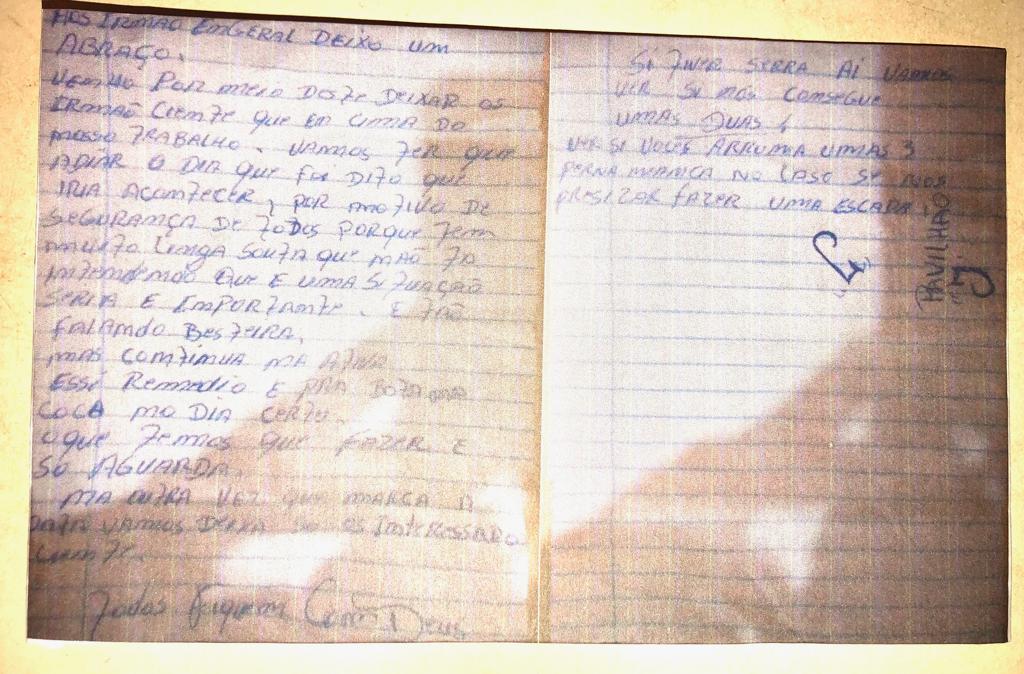 AOS IRMAO EMGERAL DEIXO UM
ABRAÇO.
VENHO POR MEIO DESTE DEIXAR OS
IRMÃO CIENTE QUE EM CIMA DO
NOSSO TRABALHO. VAMOS TER QUE
ADIAR O DIA QUE FOI DITO QUE
IRIA ACONTECER, POR MOTIVO DE
SEGURANÇA DE TODOS PORQUE TEM
MUITO LINGA SOUTA QUE NÃO TA
INTENDENDO QUE E UMA SITUAÇÃO
SERIA E EMPORTANTE. E TÃO
FALANDO BESTEIRA.
MAS CONTINUA NA ATIVA
ESSI REMEDIO E PRA BOTA NA
COCA NO DIA CERTO.
OQUE TEMOS QUE FAZER E
SO AGUARDA.
NA OUTRA VEZ QUE MARCA A
VAMOS DEIXA SO OS INTERESSADO
CIENTE.
Todos Fiquem Com Deus
SI TIVER SERRA AI VAMOS
VER SI NOS CONSEGUE
UMAS DUAS
VER SI VOCES ARRUMA UMAS 3
PERNA MANCA NO CASO SE NOS
PRESIZAR FAZER UMA ESCADA.
PAVILHÃO